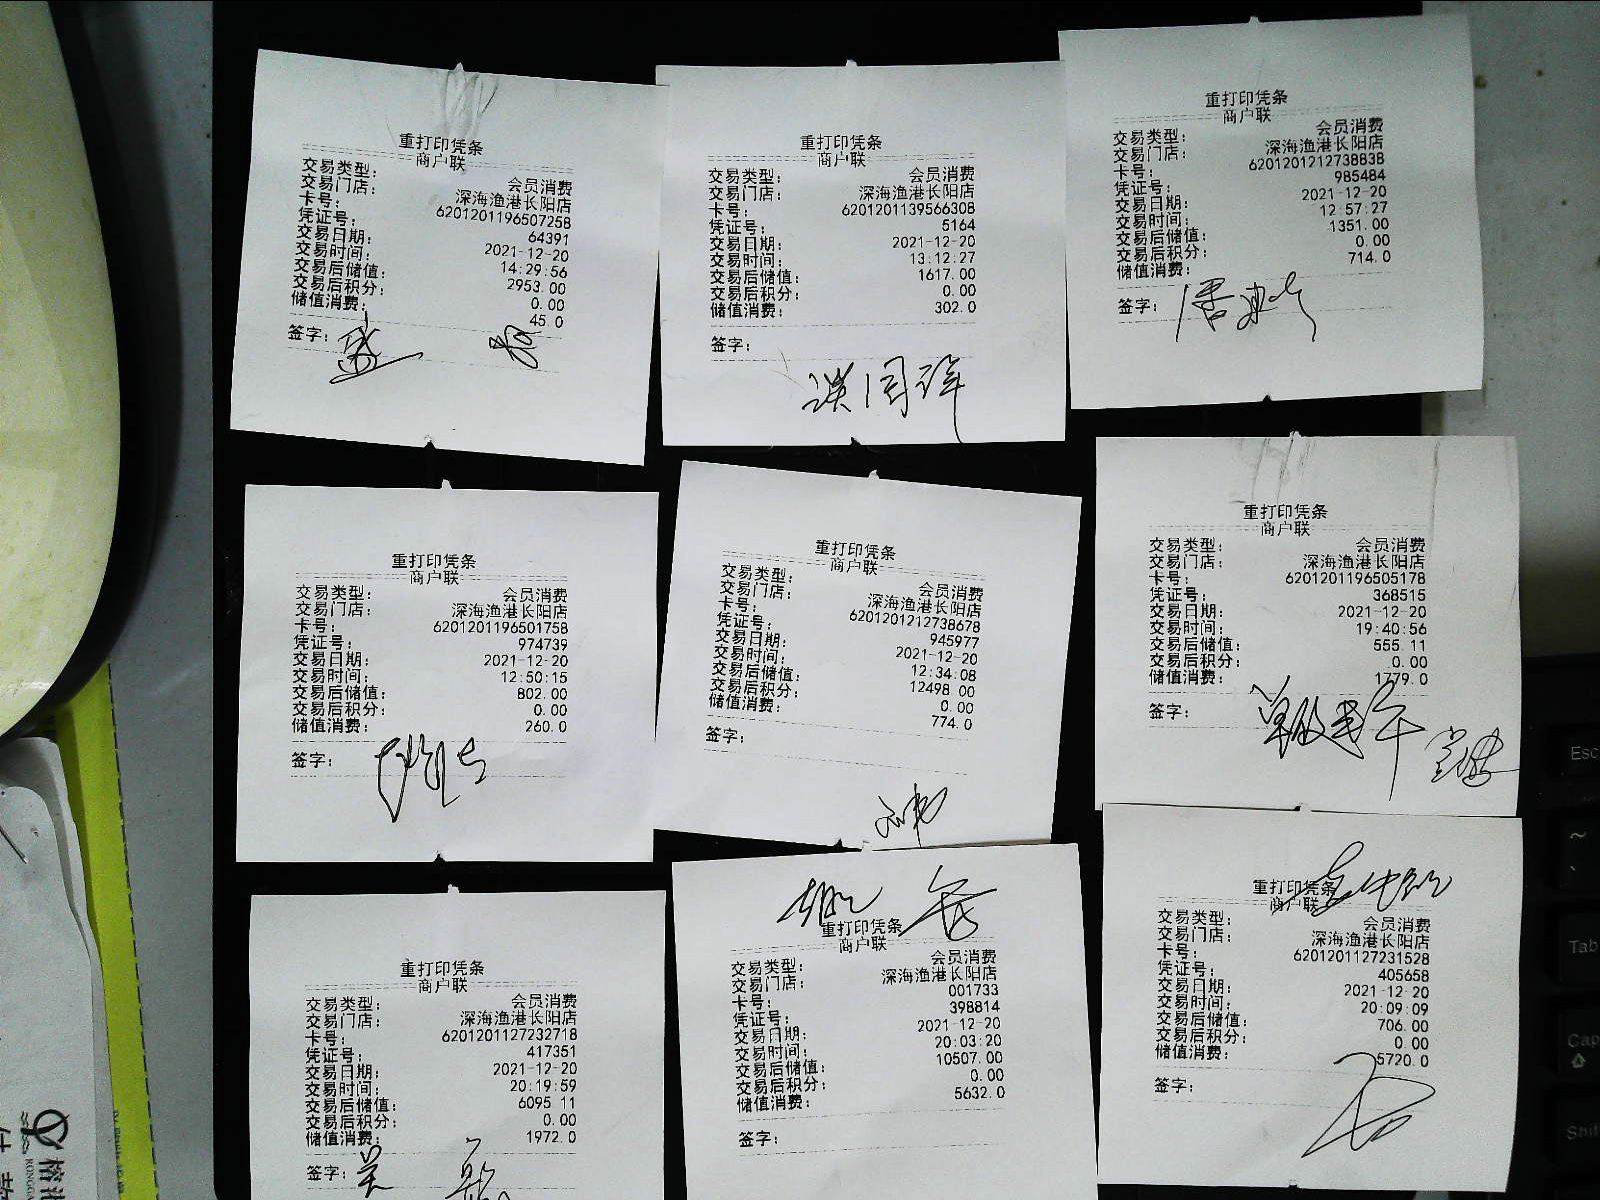 重打印凭条
商户联
交易类型： 会员消费
交易门店： 深海渔港长阳店
卡号： 6201201196507258
凭证号： 64391
交易日期： 2021-12-20
交易时间： 14:29:56
交易后储值： 2953.00
交易后积分： 0.00
储值消费： 45.0
签字：
重打印凭条
商户联
交易类型： 会员消费
交易门店： 深海渔港长阳店
卡号： 6201201139566308
凭证号： 5164
交易日期： 2021-12-20
交易时间： 13:12:27
交易后储值： 1617.00
交易后积分： 0.00
储值消费： 302.0
签字：
重打印凭条
商户联
交易类型： 会员消费
交易门店： 深海渔港长阳店
卡号： 6201201212738838
凭证号： 985484
交易日期： 2021-12-20
交易时间： 12:57:27
交易后储值： 1351.00
交易后积分： 0.00
储值消费： 714.0
签字：
重打印凭条
商户联
交易类型： 会员消费
交易门店： 深海渔港长阳店
卡号： 6201201196501758
凭证号： 974739
交易日期： 2021-12-20
交易时间： 12:50:15
交易后储值： 802.00
交易后积分： 0.00
储值消费： 260.0
签字：
重打印凭条
商户联
交易类型： 会员消费
交易门店： 深海渔港长阳店
卡号： 6201201212738678
凭证号： 945977
交易日期： 2021-12-20
交易时间： 12:34:08
交易后储值： 12498.00
交易后积分： 0.00
储值消费： 774.0
签字：
重打印凭条
商户联
交易类型： 会员消费
交易门店： 深海渔港长阳店
卡号： 6201201196505178
凭证号： 368515
交易日期： 2021-12-20
交易时间： 19:40:56
交易后储值： 555.11
交易后积分： 0.00
储值消费： 1779.0
签字：
重打印凭条
商户联
交易类型： 会员消费
交易门店： 深海渔港长阳店
卡号： 6201201127232718
凭证号： 417351
交易日期： 2021-12-20
交易时间： 20:19:59
交易后储值： 6095.11
交易后积分： 0.00
储值消费： 1972.0
签字：
重打印凭条
商户联
交易类型： 会员消费
交易门店： 深海渔港长阳店
卡号： 001733
凭证号： 398814
交易日期： 2021-12-20
交易时间： 20:03:20
交易后储值： 10507.00
交易后积分： 0.00
储值消费： 5632.0
签字：
重打印凭条
商户联
交易类型： 会员消费
交易门店： 深海渔港长阳店
卡号： 6201201127231528
凭证号： 405658
交易日期： 2021-12-20
交易时间： 20:09:09
交易后储值： 706.00
交易后积分： 0.00
储值消费： 5720.0
签字：
Esc
Tab
Cap
Shif